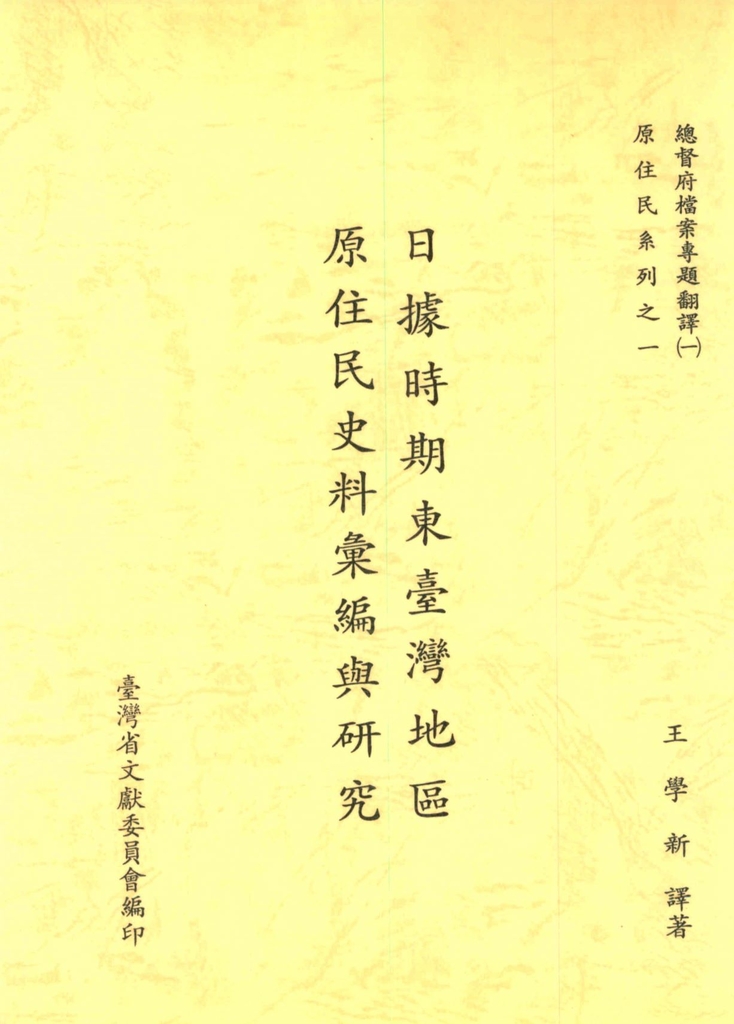 總督府檔案專題翻譯㈠
原住民系列之一
王學新 譯著
日據時期東臺灣地區
原住民史料彙編與研究
臺灣省文獻委員會編印